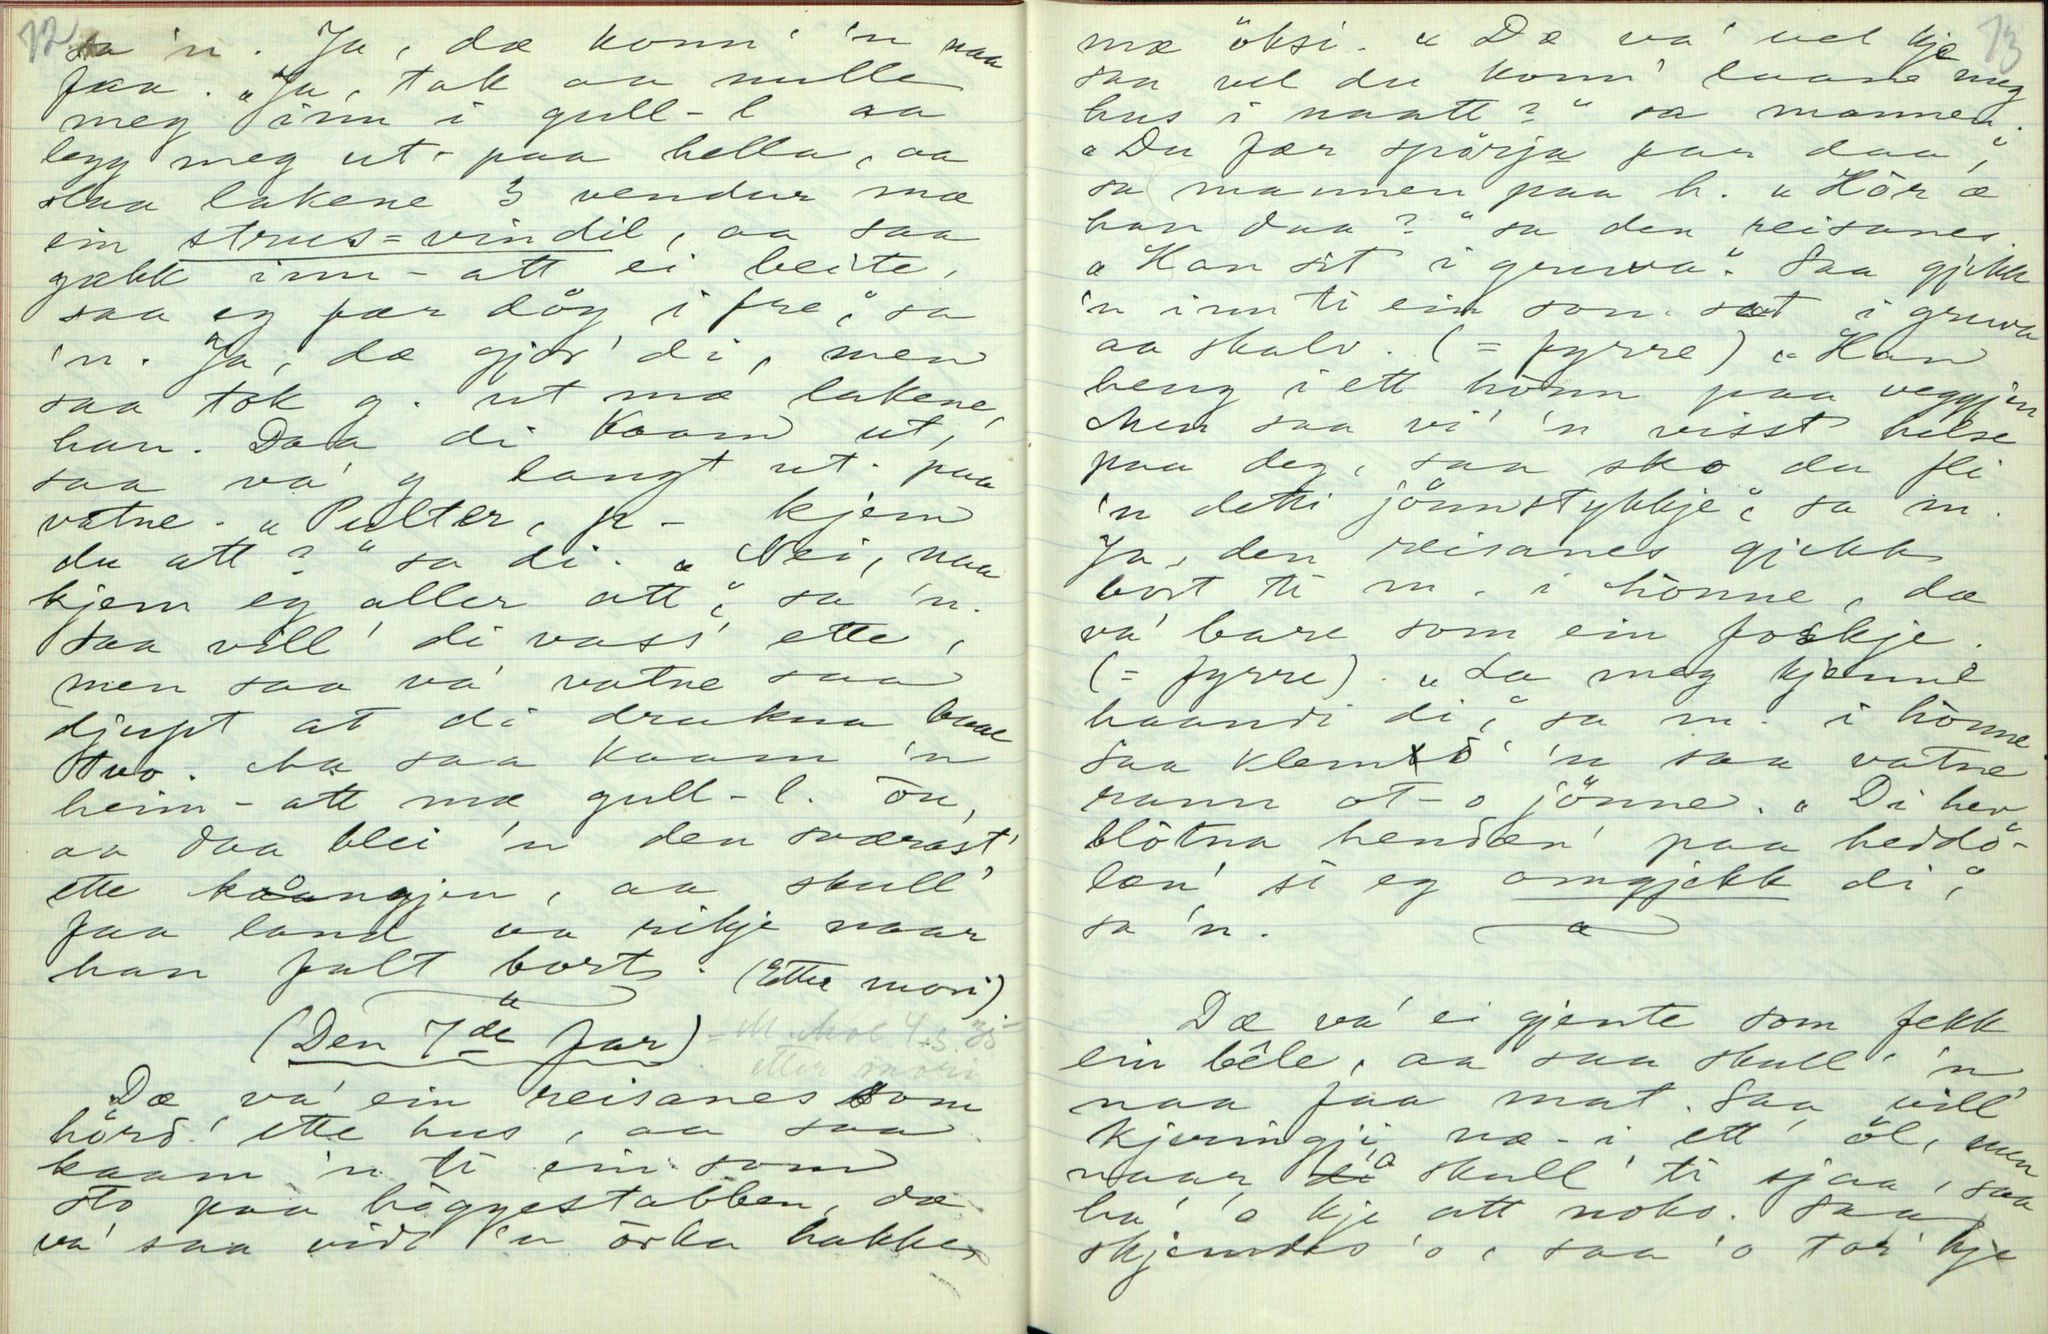 72
sa 'n. Ja, dæ konn' 'n naa
faa. „Ja, tak aa rulle
meg inn i gull-l aa
legg meg ut-paa hella, aa
slaa lakene 3 vendur mæ
ein strus=vindil, aa saa
gække inn-att ei beite,
saa eg fær döy i fre," sa
'n. Ja, dæ gjor' di, men
saa tok g. ut mæ lakene,
han. Daa di kaam ut,
saa va' g langt ut-paa
vatne. „Pulter, p- kjem
du att?" sa di. „Nei, naa
kjem eg aller att", sa 'n.
Saa vill' di vass' ette,
men saa va' vatne saa
djupt at di drukna baae
tvo. Aa saa kaam 'n
heim-att mæ gull-l. ön,
aa daa blei 'n den sværast'
ette kaangjen, aa skull'
faa land aa rikje naar
han falt bort. (Etter mori)
(Den 7de far) = M. Moe
etter mori
Dæ va' ein reisanes som
hörd' ette hus, aa saa
kaam 'n ti ein som
sto paa höggestabben, dæ
va' saa vidt 'n örka hakke
73
mæ öksi. „Dæ va' vel kje
saa vel du konn' laane meg
hus i naatt?" sa mannen.
„Du fær spörja far daa",
sa mannen paa h. „Hör æ
han daa?" sa den reisanes.
„Han sit i gruva". Saa gjekk
'n inn ti ein som sat i gruva
aa skalv. (= fyrre) „Han
heng i ett hönn paa veggjen
Men saa vi' 'n visst helse
paa deg, saa sko du fli
'n detti jönnstykkje", sa m.
Ja, den reisanes gjekk
bort ti m. i hönne, dæ
va' bare som ein foskje.
(= fyrre). „La meg kjenne
haandi di," sa m. i hönne.
Saa klemd' 'n saa vatne
rann ot-o jönne. „Di hev
blötna hendan' paa heddö-
læn' si eg omgjekk di",
sa 'n.
Dæ va' ei gjente som fekk
ein bêle, aa saa skull' 'n
naa faa mat. Saa vill'
kjeringji næ-i ett öl, men
naar o skull' ti sjaa, saa
ha' 'o kje att noko. Saa
skjemdes 'o, saa 'o tor' kje